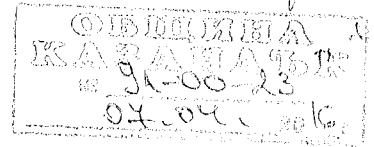 ОБЩИНА
КАЗАНЛЪК
№ 91-00-23
07.04. 2016